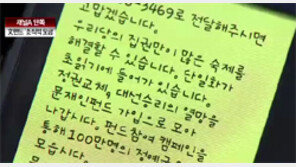 채널A 단독
3469로 전달해주시면
고맙겠습니다.
우리당의 집권만이 많은 숙제를
해결할 수 있습니다. 단일화가
초읽기에 들어가 있습니다.
정권교체, 대선승리의 열망을
문재인펀드 가입으로 모아
나갑시다. 펀드참여 캠페인을
통해 100만명의
모읍시다.